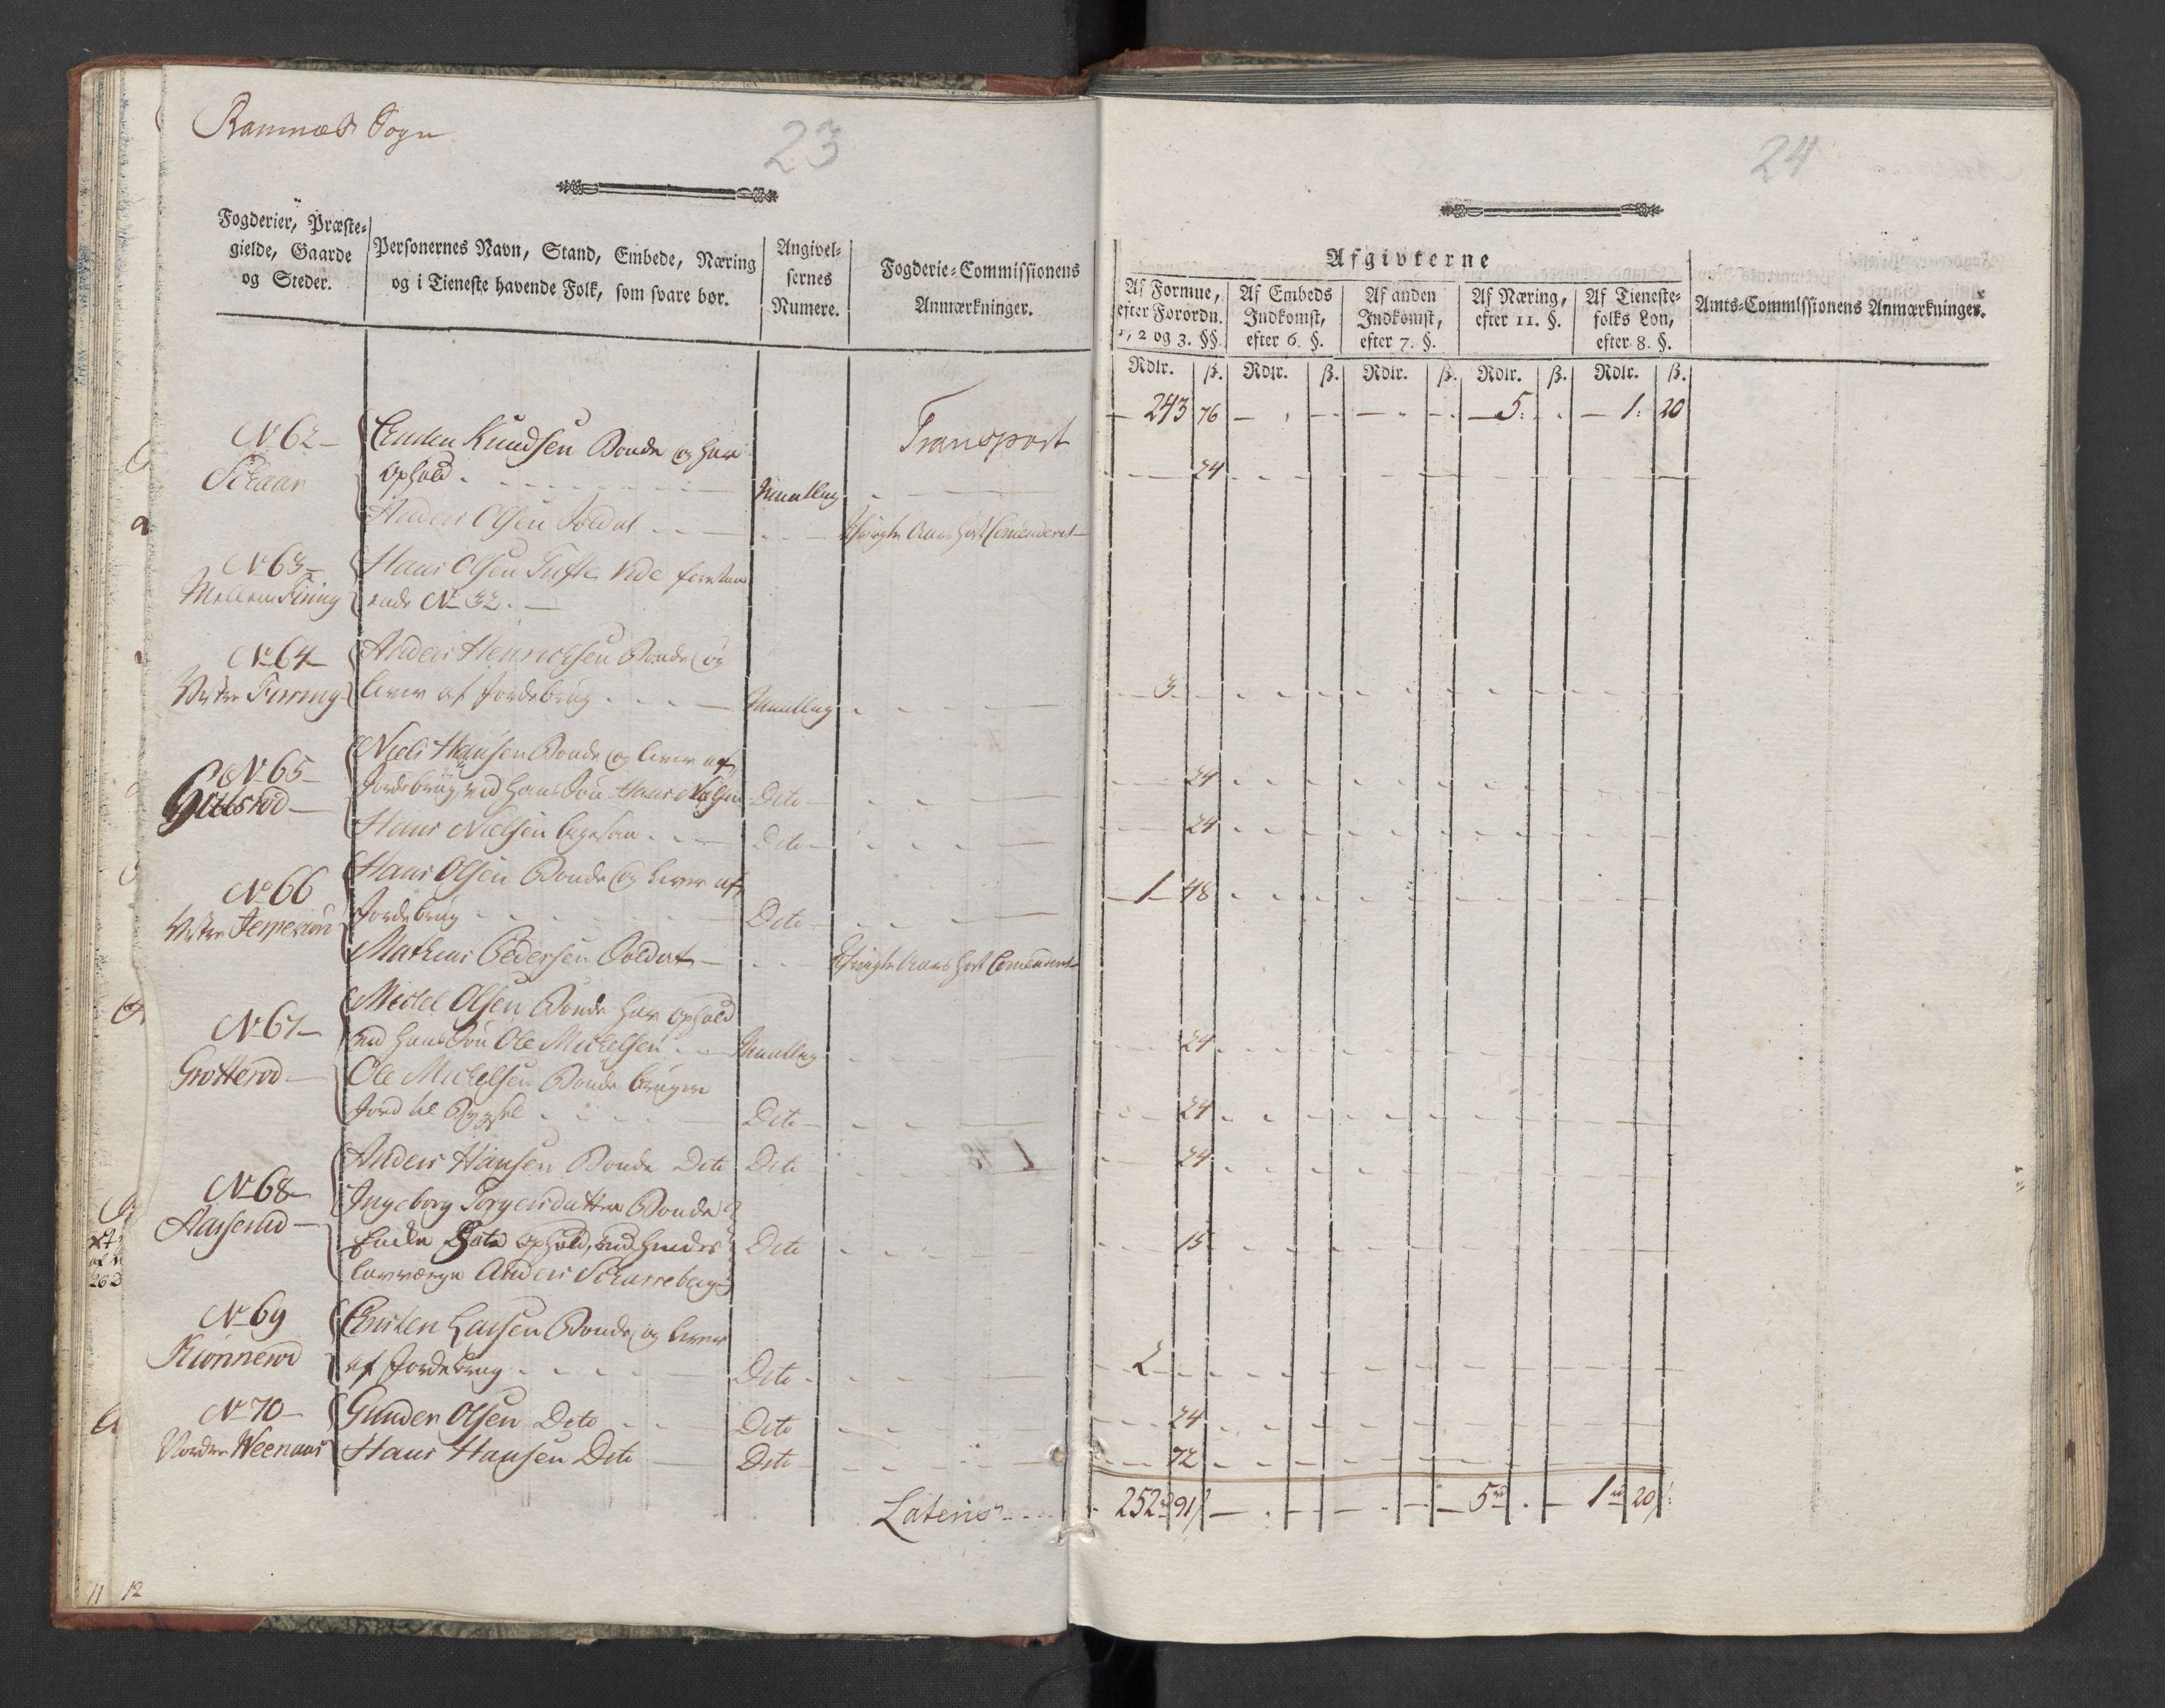 Ramnæs Sogn
23
Fogderier, Præste-
gielde, Gaarde
og Steder.
Personernes Navn, Stand, Embede, Næring
og i Tieneste havende Folk, som svare bør.
Angivel-
sernes
Numere.
Fogderie-Commissionens
Anmærkninger.
Transport
No 62
Christen Knudsen Bonde og har
Ophold
Mundtlig
Anders Olsen Soldat
No 63
Mellem Firing
Hans Olsen Tufte vide foranstaa-
ende No 32.
No 64
Vestre Firring
Anders Henrichsen Bonde og
lever af Jordebrug
Mundtlig
No 65
Niels Hansen Bonde og lever af
Jordebrug, ved hans Søn Hans Nielsen
Dito
Hans Nielsen Logesom
Dito
No 66
Vestre
Hans Olsen Bonde og lever af
Jordebrug
Dito
Mathias Pedersen Soldat
No 67
Grotterød
Michel Olsen Bonde har Ophold
ved hans Søn Ole Michelsen
Mundtlig
Ole Michelsen Bonde bruger
Jord til Bygsel
Dito
No 68
Anders Hansen Bonde Dito
Dito
Ingeborg Torgersdatter Bonde
Enke Ophold, ved hendes
Laugværge Anders
Dito
No 69
Kiønnerød
Christen Larsen Bonde og lever
af Jordebrug
Dito
No 70
Nordre Weenaas
Gunder Olsen Dito
Dito
Hans Hansen Dito
Dito
Lateris
11 12
24
Afgivterne
Af Formue,
efter Forordn.
1, 2 og 3. §§.
Af Embeds
Indkomst,
efter 6. §.
Af anden
Indkomst,
efter 7. §.
Af Næring,
efter 11. §.
Af Tieneste-
folks Løn,
efter 8. §.
Amts-Commissionens Anmærkninger.
Rdlr. ß. Rdlr. ß. Rdlr. ß. Rdlr. ß. Rdlr. ß.
243 76 5 1 20
24
3
24
24
1 48
24
24
24
15
2
24
72
252 91 5 1 20